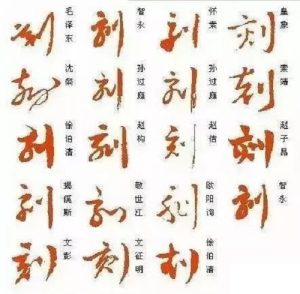 刻 毛泽东 刻 智永 刻 怀素 刻 皇象
刻 沈粲 刻 孙过庭 刻 孙过庭 刻 索靖
刻 徐伯清 刻 赵构 刻 赵佶 刻 赵子昂
刻 揭傒斯 刻 敬世江 刻 欧阳询 刻 智永
刻 文彭 刻 文征明 刻 徐伯清